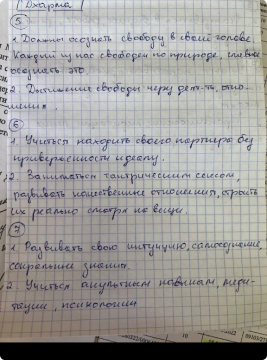 Дхарма
5
1. Должны осознать свободу в своей голове.
Каждый из нас свободен по природе, главное
осознать это.
2. Достижение свободы через дет-ть, отно-
шения.
6
1. Учиться находить своего партнера без
привередливости идеалу.
2. Заниматься тантрическим сексом,
развивать качественные отношения, строить
их реально смотря на вещи.
7
1. Развивать свою интуицию, самосознание,
сакральные знания.
2. Учиться оккультным навыкам, меди-
тации, психологии